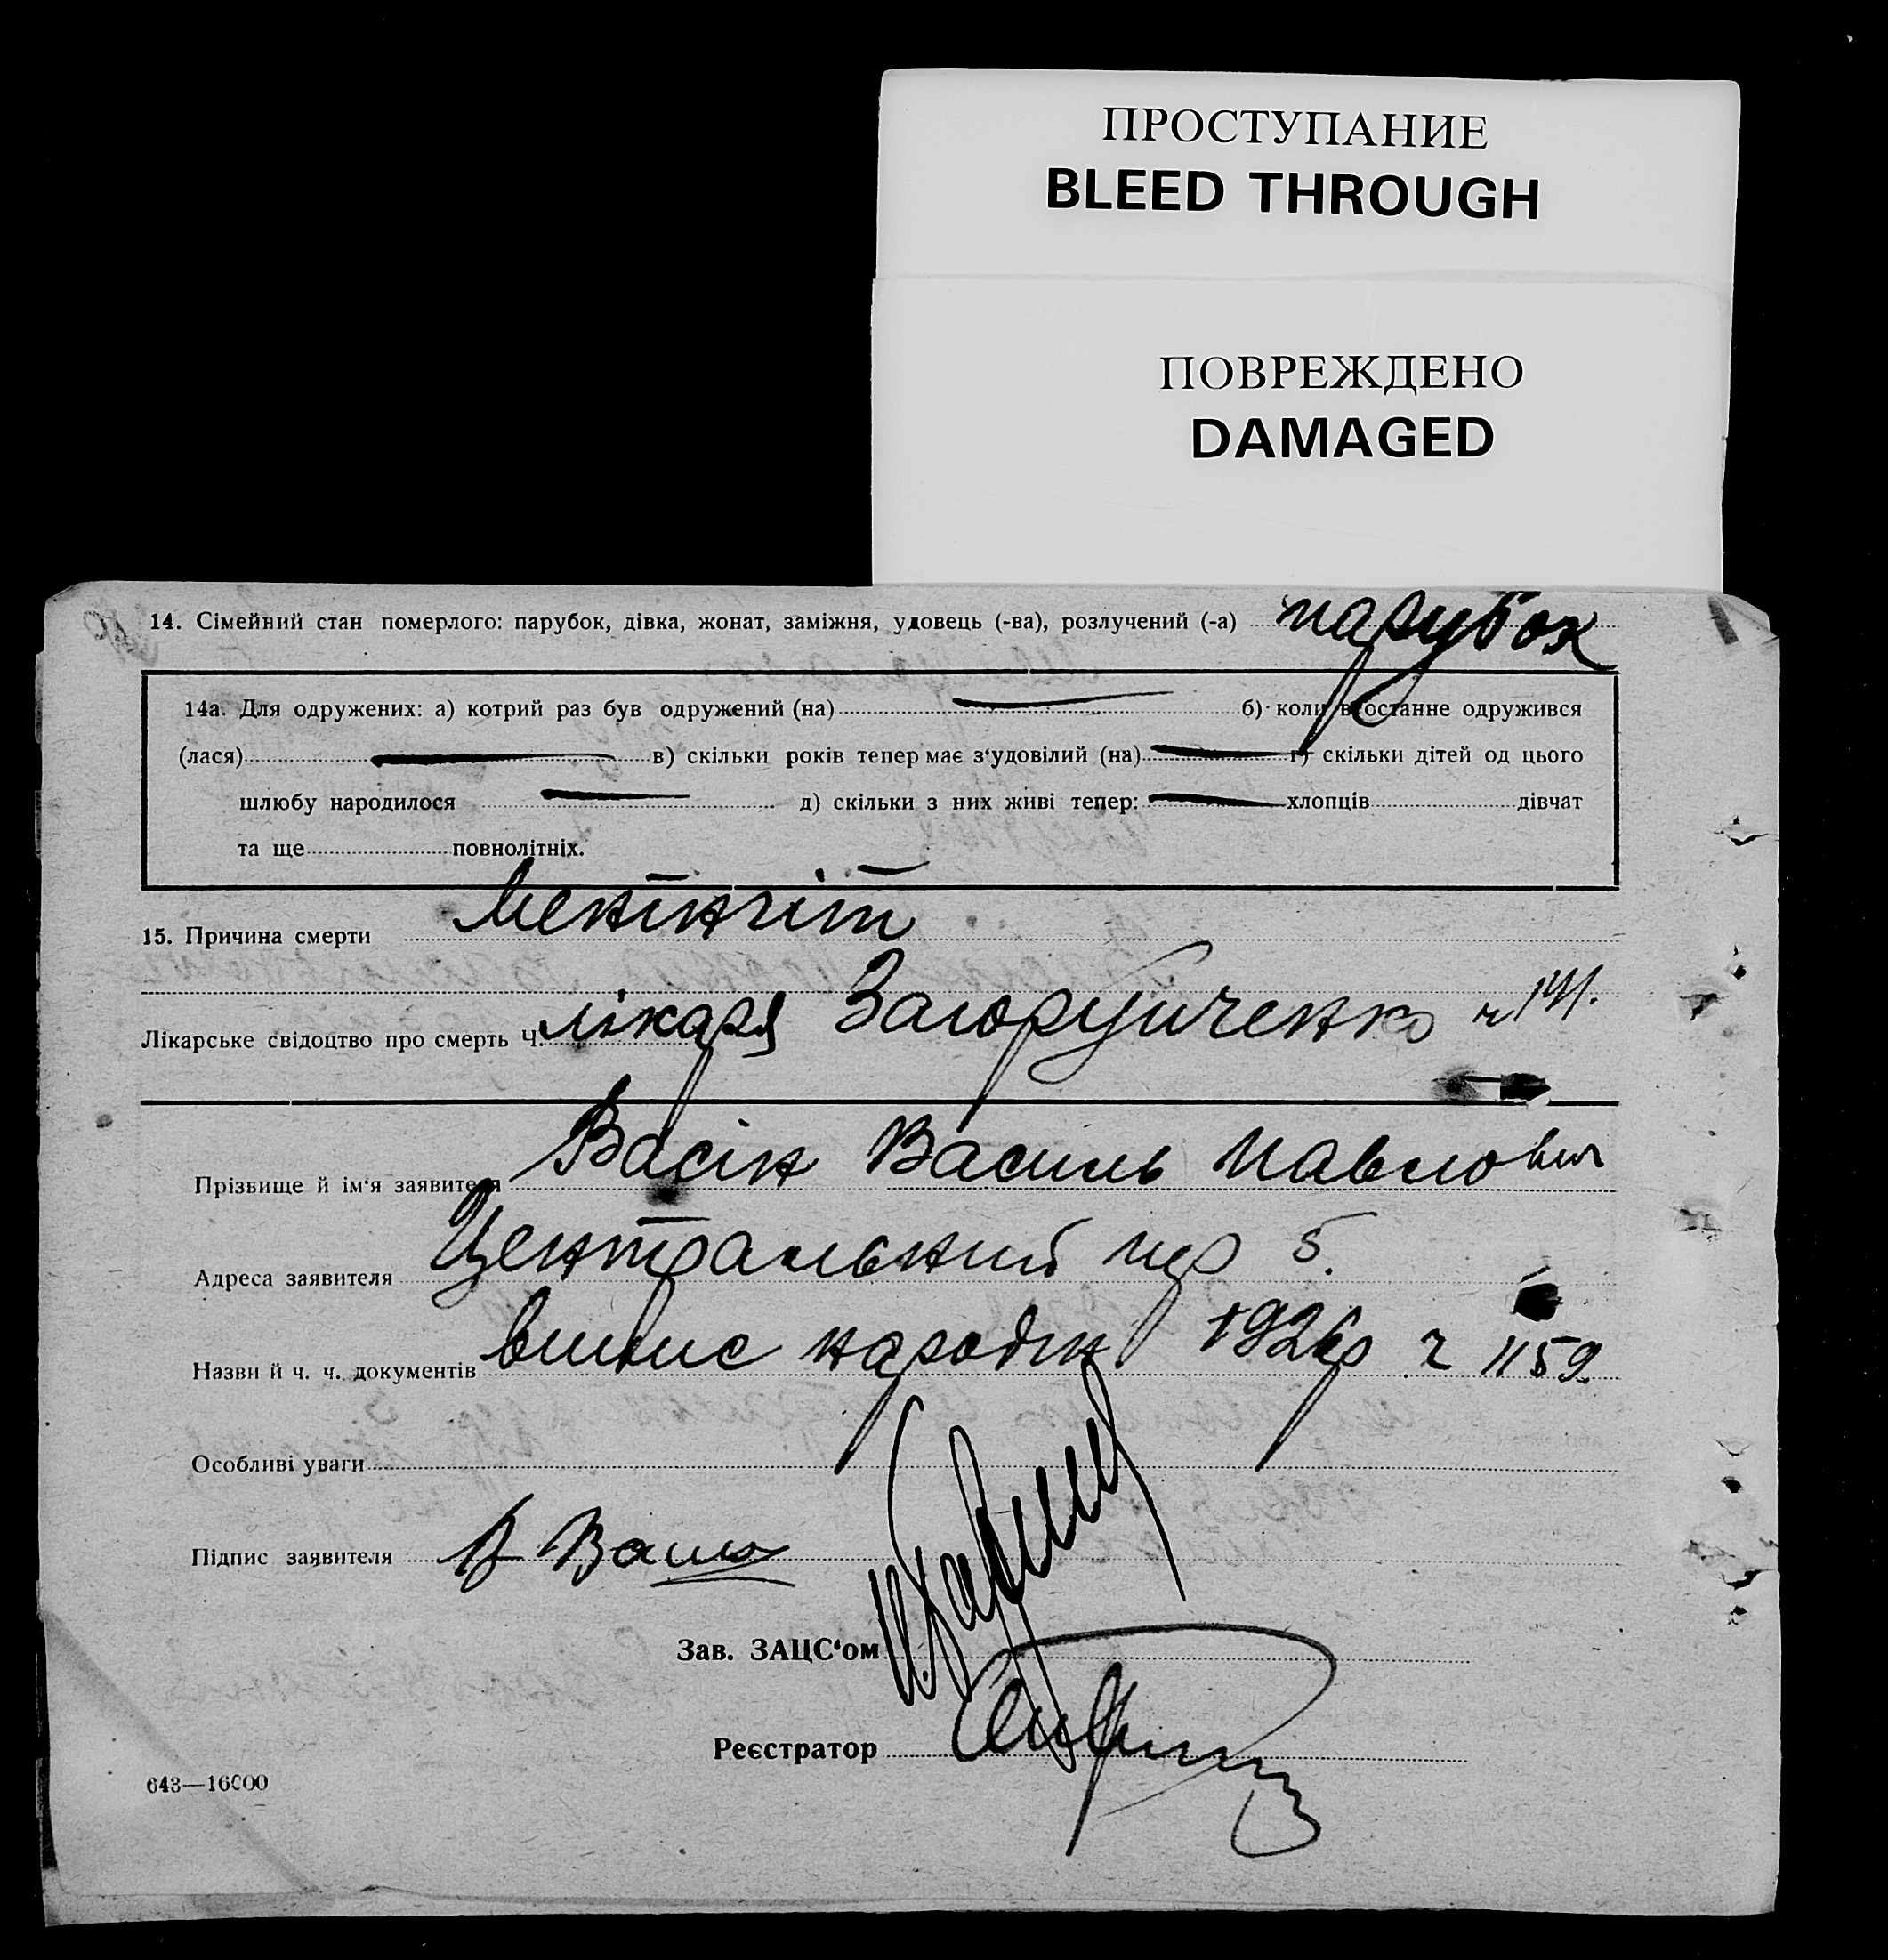 ПРОСТУПАНИЕ
BLEED THROUGH
ПОВРЕЖДЕНО
DAMAGED
14. Сімейний стан померлого: парубок, дівка, жонат, заміжня, удовець (-ва), розлучений (-а) парубок
14а. Для одружених: а) котрий раз був одружений (на) б) коли востанне одружився
(лася) в) скільки років тепер має з‘удовілий (на) г) скільки дітей од цього
шлюбу народилося д) скільки з них живі тепер: хлопців дівчат
та ще повнолітніх.
15. Причина смерти Менінгіт
Лікарське свідоцтво про смерть Ч. лікаря ч 141.
Прізвище й ім‘я заявителя Васін Василь Павлович
Адреса заявителя Центральний пер 5.
Назви й ч. ч. документів випис народин 1926р ч 1159
Особливі уваги
Підпис заявителя В
Зав. ЗАЦС‘ом
Реєстратор
643—16000